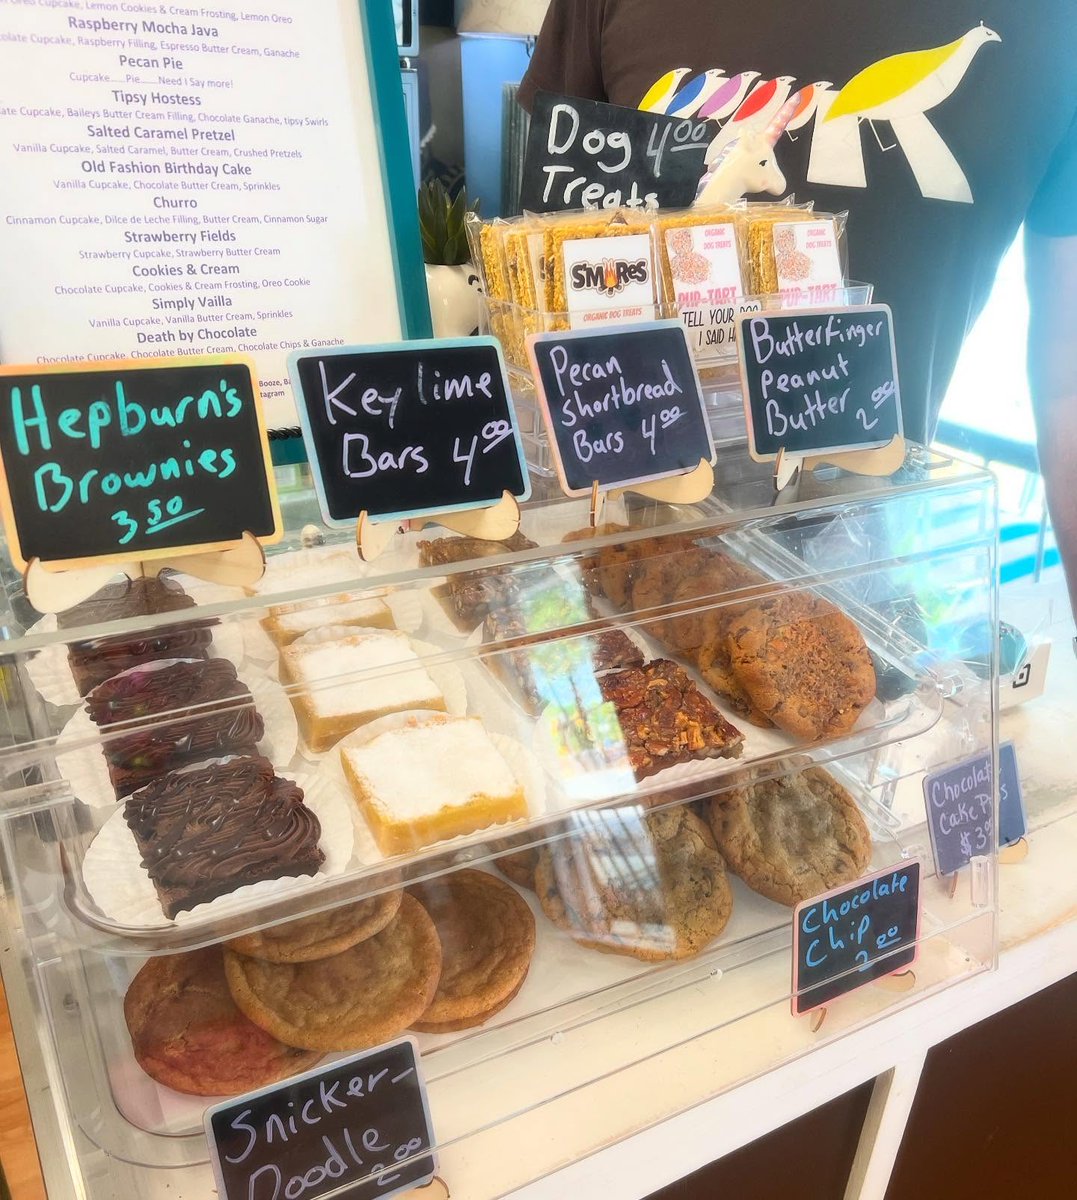 Cupcake, Lemon Cookies & Cream Frosting, Lemon Oreo
Raspberry Mocha Java
Cupcake, Raspberry Filling, Espresso Butter Cream, Ganache
Pecan Pie
Cupcake......Pie........Need I Say more!
Tipsy Hostess
Cupcake, Baileys Butter Cream Filling, Chocolate Ganache, tipsy Swirls
Salted Caramel Pretzel
Vanilla Cupcake, Salted Caramel, Butter Cream, Crushed Pretzels
Old Fashion Birthday Cake
Vanilla Cupcake, Chocolate Butter Cream, Sprinkles
Churro
Cinnamon Cupcake, Dilce de Leche Filling, Butter Cream, Cinnamon Sugar
Strawberry Fields
Strawberry Cupcake, Strawberry Butter Cream
Cookies & Cream
Chocolate Cupcake, Cookies & Cream Frosting, Oreo Cookie
Simply Vailla
Vanilla Cupcake, Vanilla Butter Cream, Sprinkles
Death by Chocolate
Chocolate Cupcake, Chocolate Butter Cream, Chocolate Chips & Ganache
Booze,
Dog 4.00
Treats
S'MORES
ORGANIC DOG TREATS
ORGANIC
DOG TREATS
PUP-TART
TELL YOUR DOG
I SAID HI
ORGANIC
DOG TREATS
PUP-TART
Hepburn's
Brownies
3.50
Key lime
Bars 4.00
Pecan
Shortbread
Bars 4.00
Butterfinger
Peanut
Butter 2.00
Chocolate
Cake Pops
Chocolate
Chip
2.00
Snicker-
Doodle
2.00